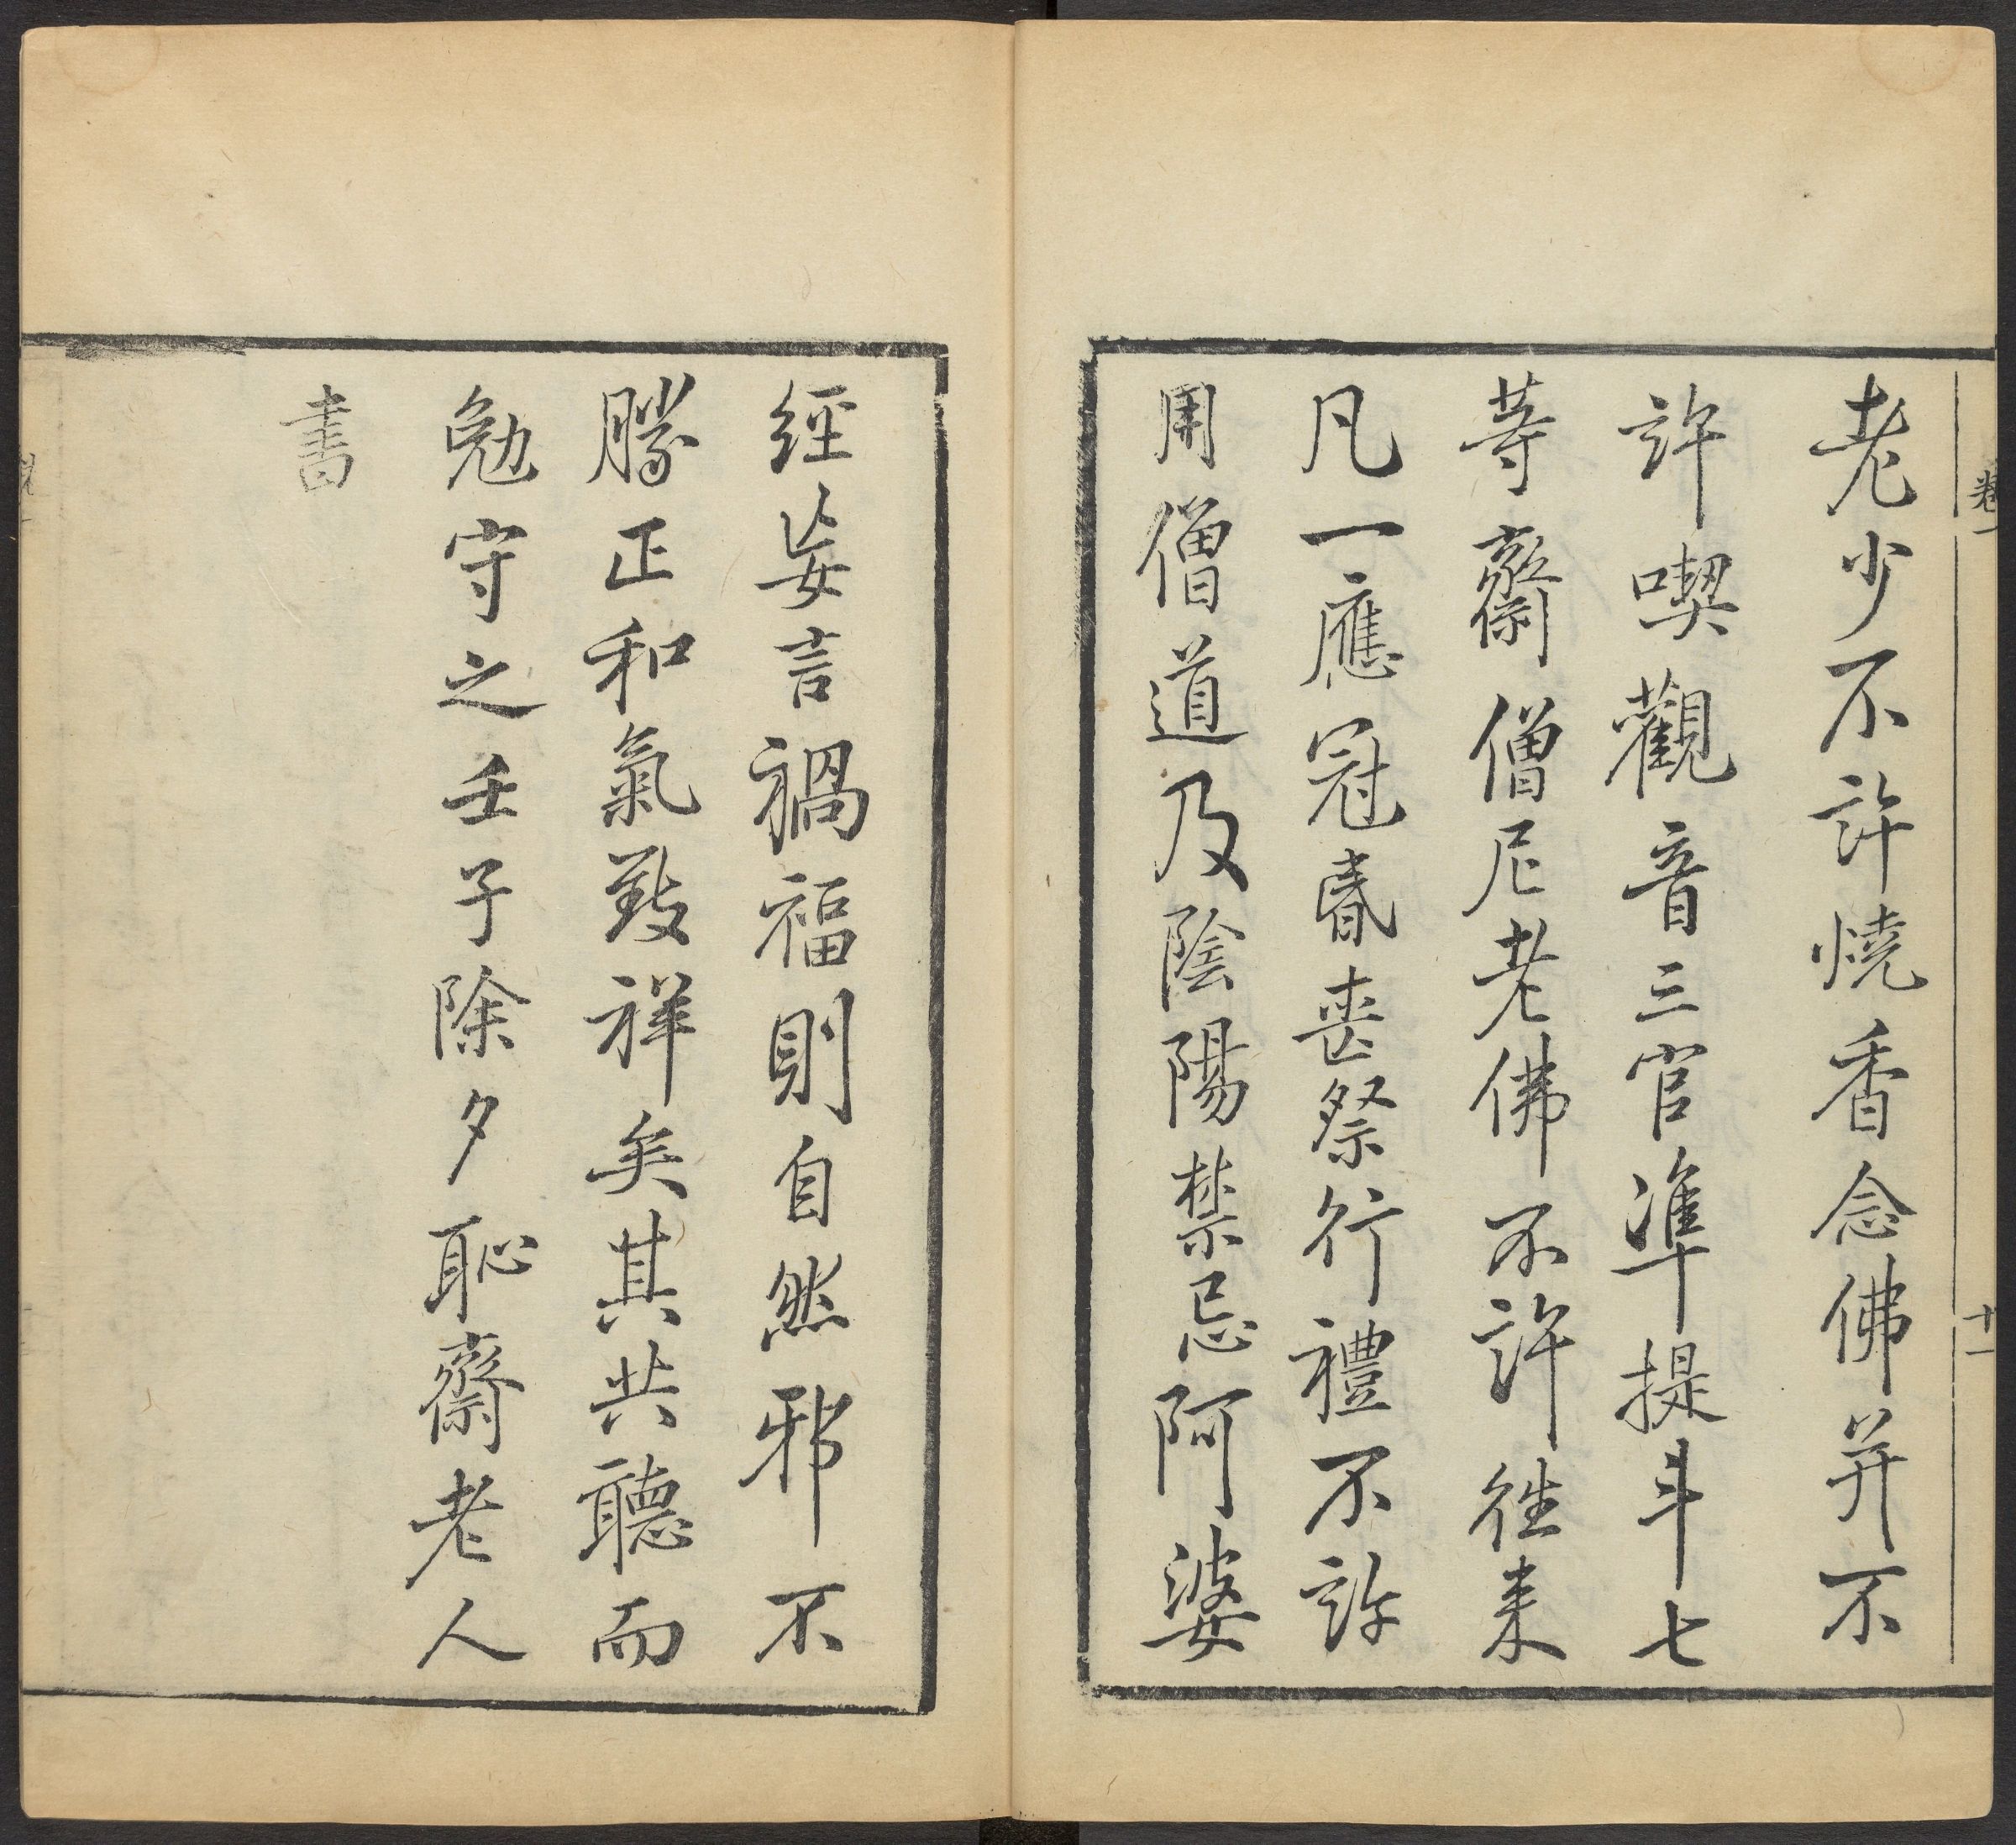 卷一
十一
老少不許燒香念佛并不
許喫觀音三官準提斗七
等齋僧尼老佛不許徃来
凡一應冠昏喪祭行禮不許
用僧道及陰陽禁忌阿婆
經妄言禍福則自然邪不
勝正和氣致祥矣其共聽而
勉守之壬子除夕恥齋老人
書